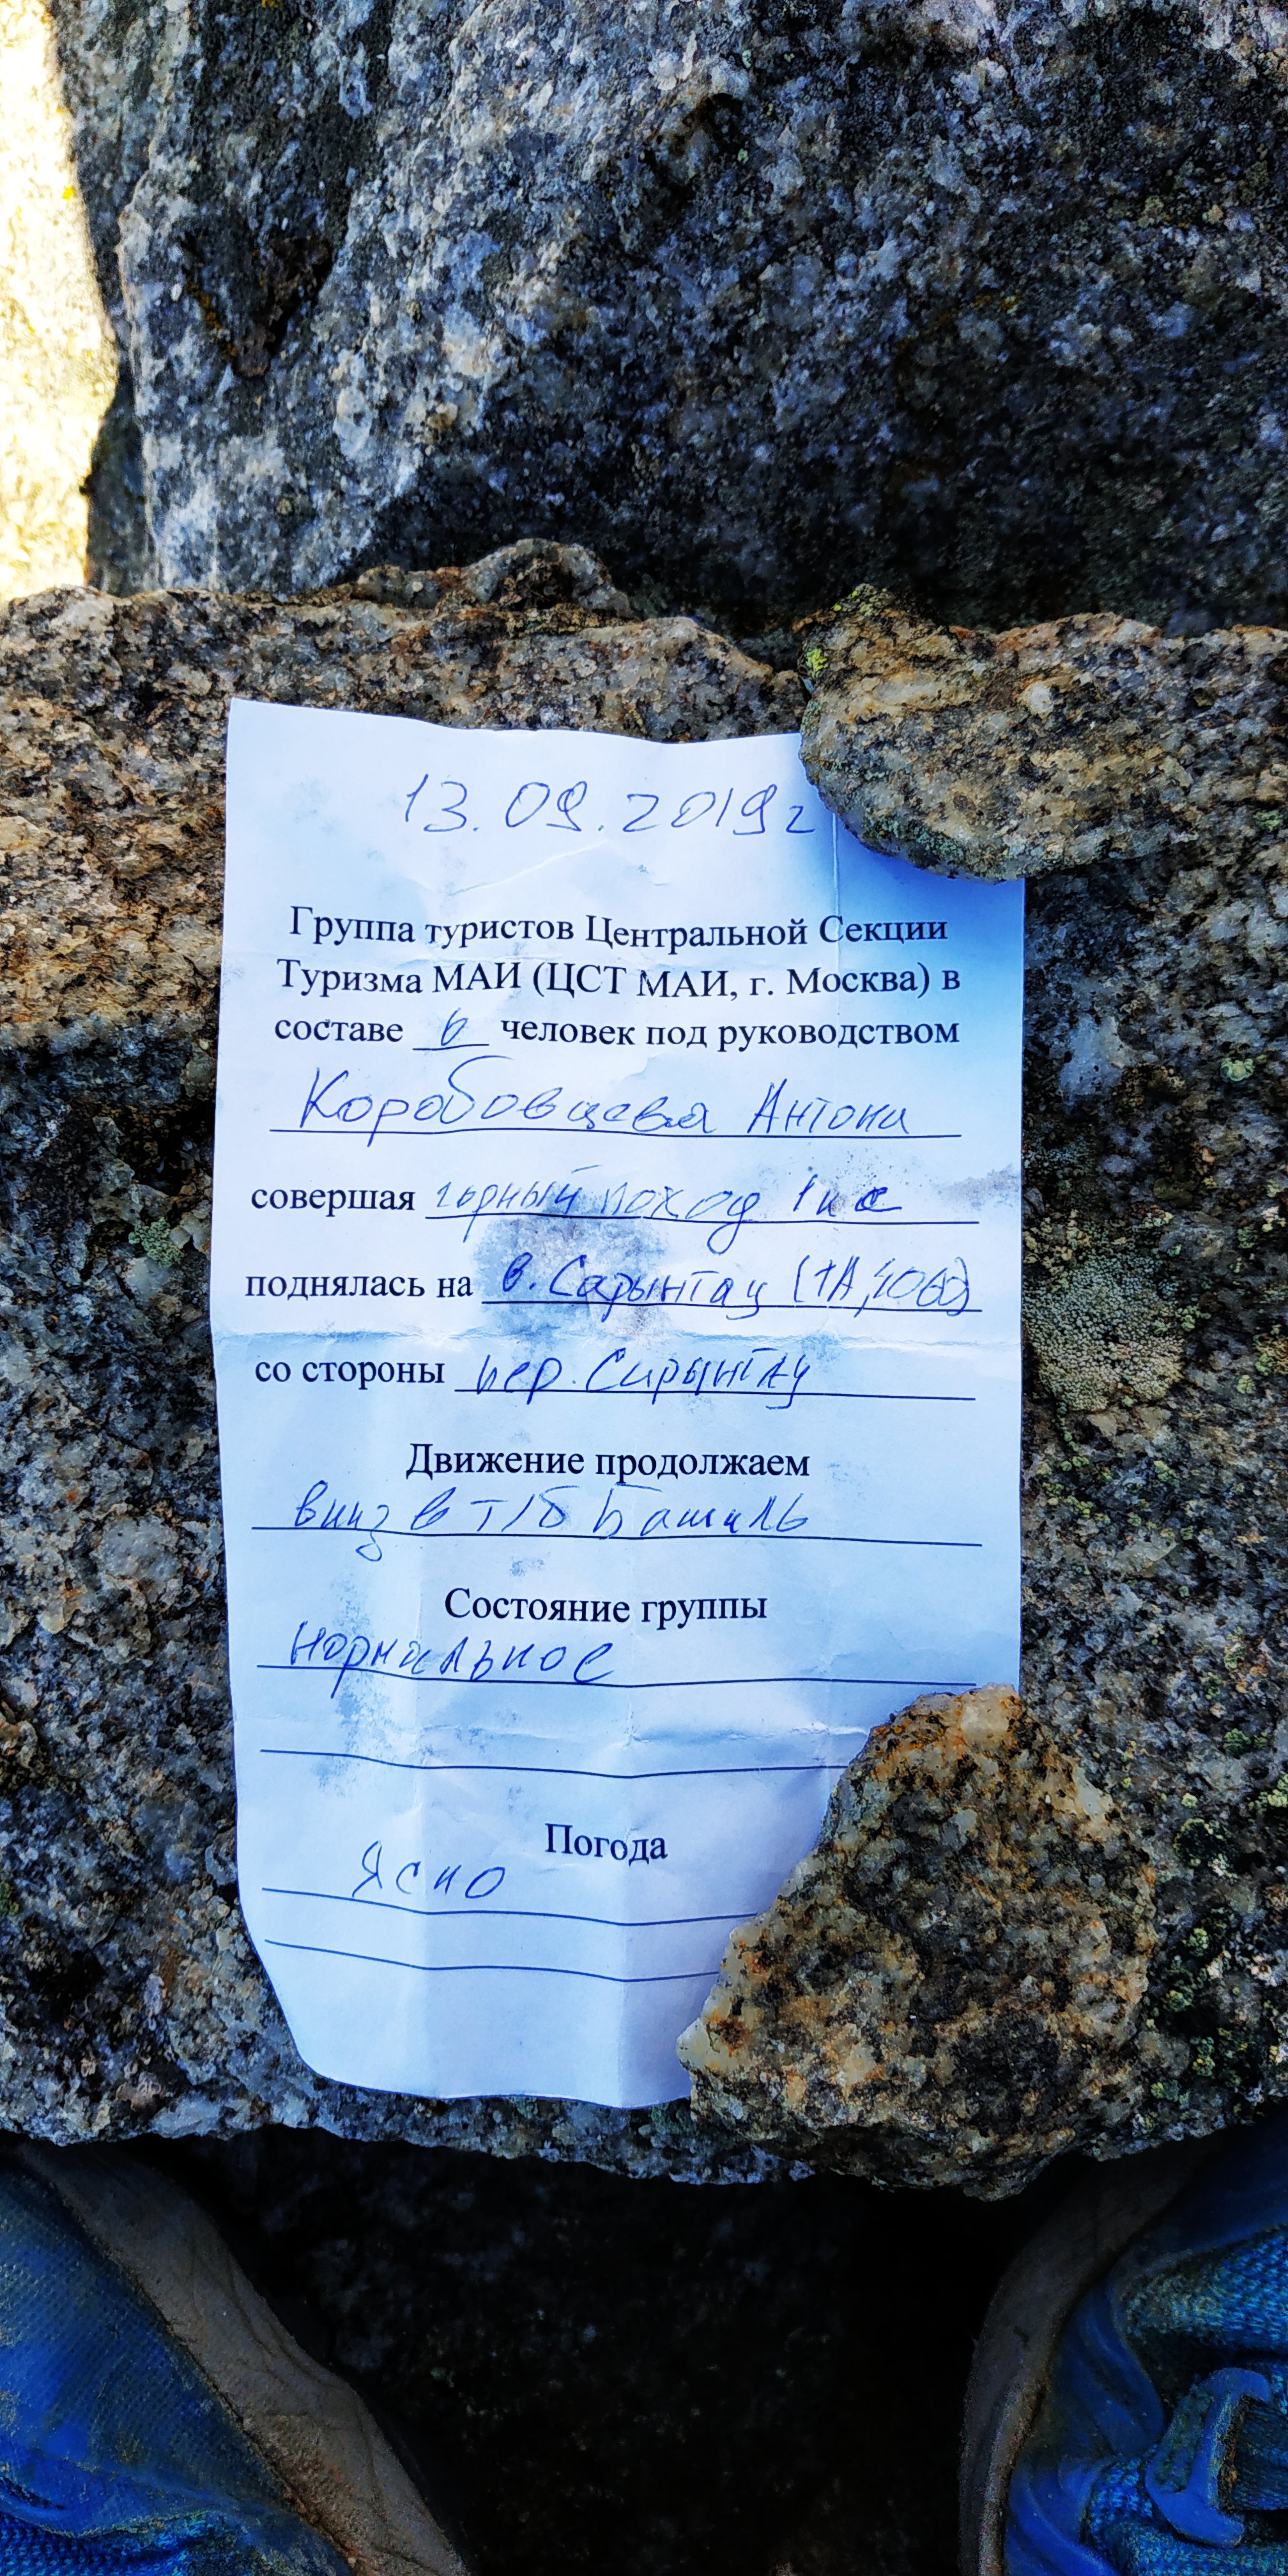 13.09.2019г
Группа туристов Центральной Секции
Туризма МАИ (ЦСТ МАИ, г. Москва) в
составе 6 человек под руководством
Коробовцева Антона
совершая горный поход 1 к с
поднялась на в. Сарынтау (1А, 4060)
со стороны пер. Сарынтау
Движение продолжаем
вниз в т/б Башиль
Состояние группы
нормальное
Погода
Ясно